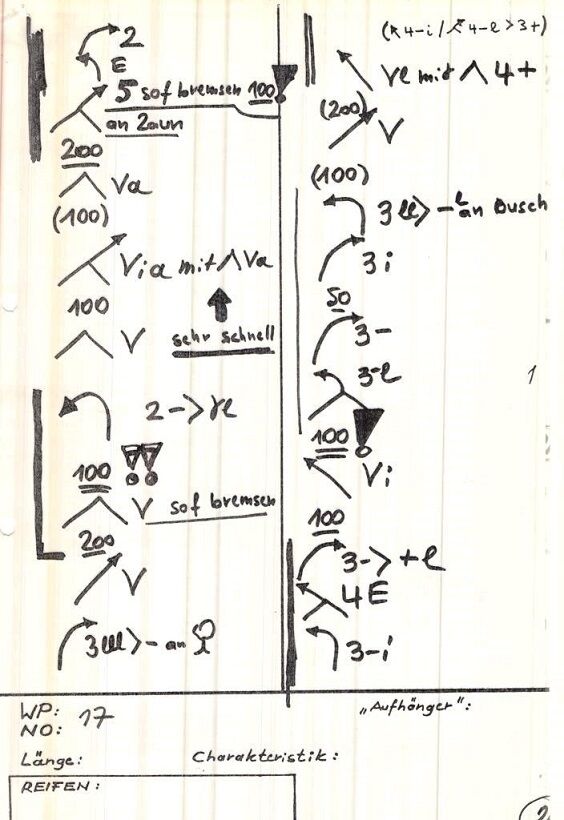 2
E
5 sof bremsen 100
an Zaun
200
Va
(100)
Via mit Λ Va
100
sehr schnell
V
2 -> re
100 !!
V sof bremsen
200
V
an
(↖4-i / 4-e > 3+)
re mit Λ 4+
(200)
V
(100)
an Busch
3i
50
3-
3-e
100 !
Vi
100
3-> +e
4E
3-i
WP: 17
NO:
„Aufhänger":
Länge: Charakteristik:
REIFEN: